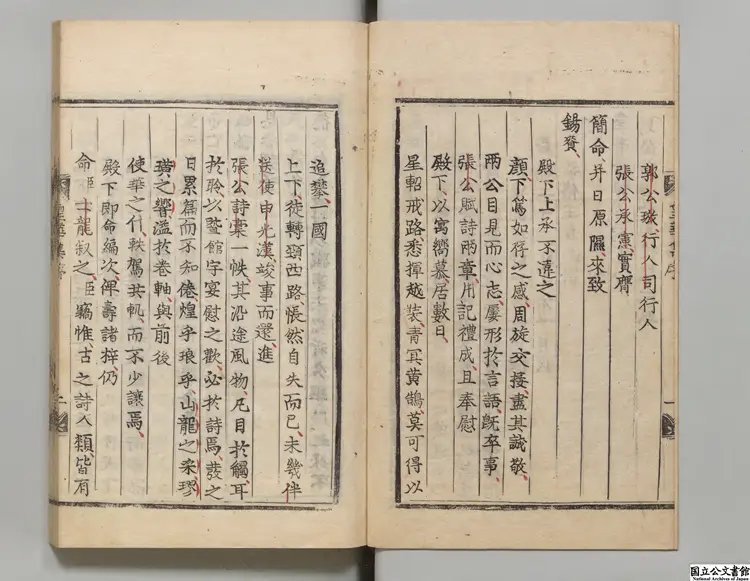 郭公璣行人司行人
張公承憲實齎
簡命并日原隰來致
錫賚
殿下上承不遠之
顏下篤如存之感周旋交接盡其誠敬
兩公目見而心志屢形於言語旣卒事
張公賦詩兩章用記禮成且奉慰
殿下以寓嚮慕居數日
星軺戒路悉揮越裝靑冥黃鵠莫可得以
追攀一國
上下徒轉頸西路悵然自失而已未幾伴
送使申光漢竣事而還進
張公詩橐一帙其沿途風物凡目於觸耳
於聆以曁館宇宴慰之歡必於詩焉發之
日累篇而不知倦煌乎琅乎山龍之采璆
璜之響溢於卷軸與前後
使華之什軼駕共軌而不少讓焉
殿下卽命編次俾壽諸梓仍
命臣士龍叙之臣竊惟古之詩人類皆有
皇華集序
一
皇華集序
二
国立公文書館
National Archives of Japan